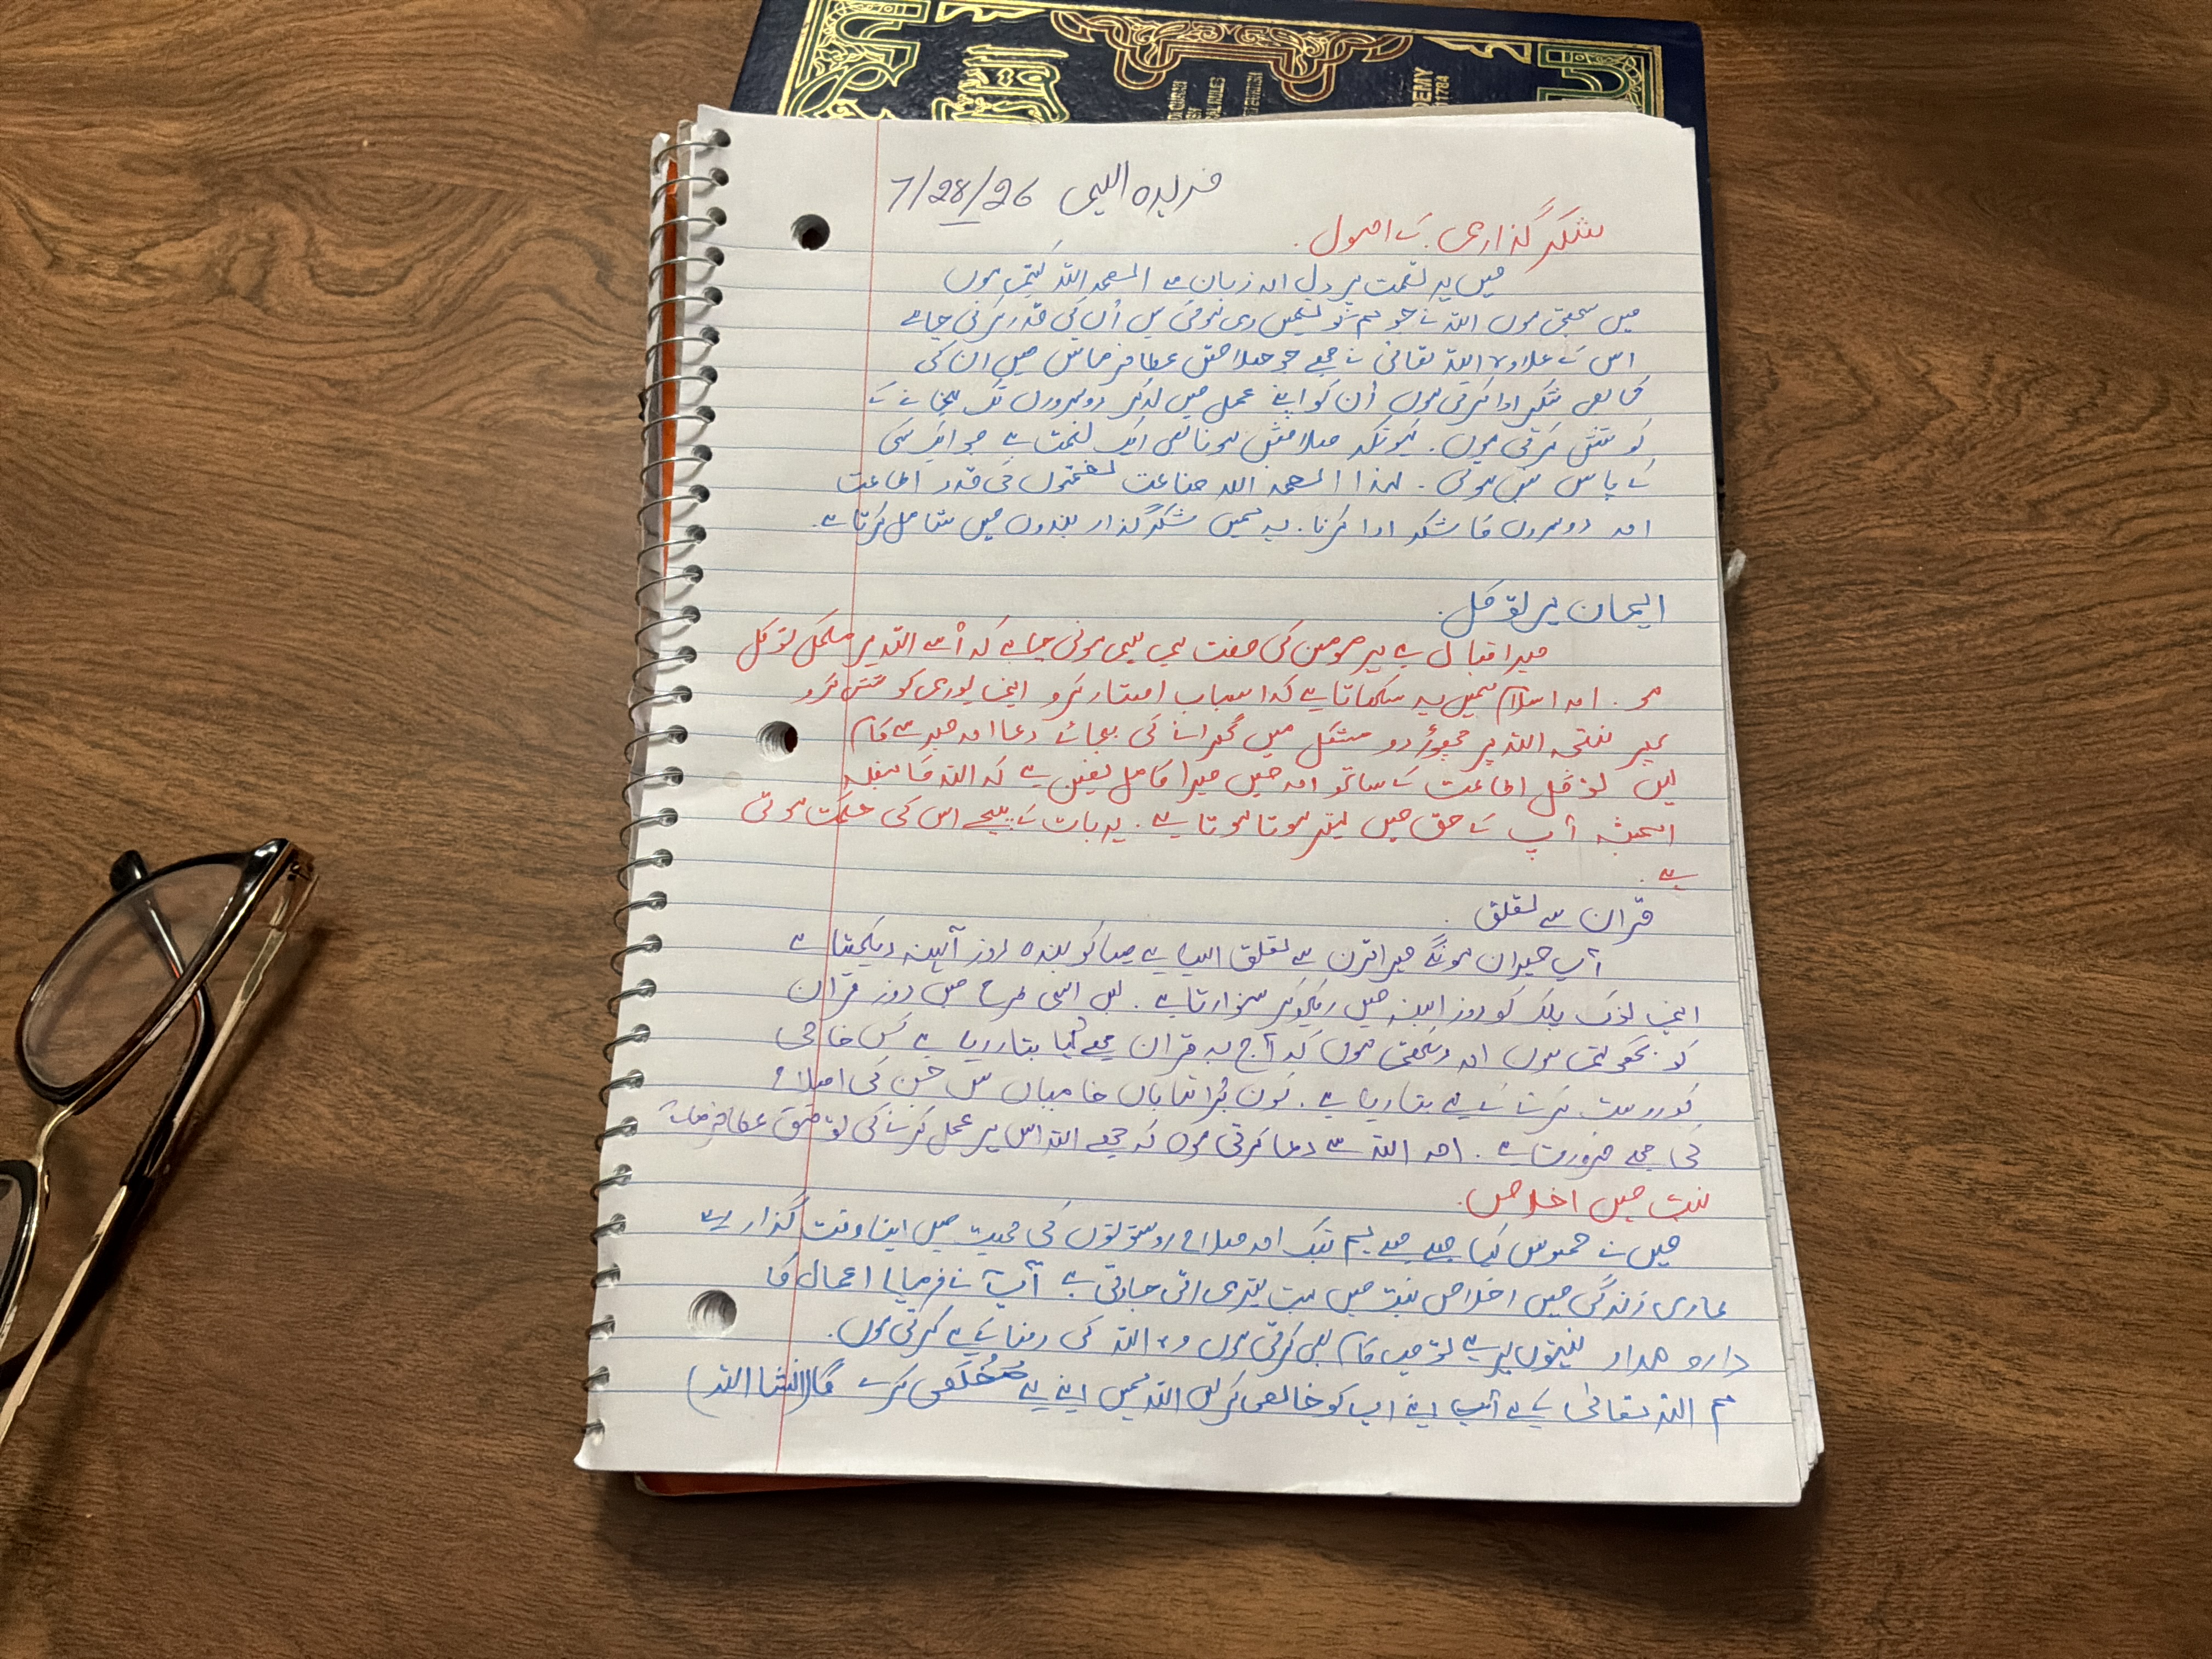 فریدہ الہی 7/28/26
شکر گذاری کے اصول.
میں ہر نعمت پر دل اور زبان سے الحمد اللہ کہتی ہوں
میں سمجھتی ہوں اللہ نے جو ہم کو نعمتیں دی ہوئی ہیں اُن کی قدر کرنی چاہے
اس کے علاوہ اللہ تعالیٰ نے مجھے جو صلاحتیں عطا فرمائیں ہیں ان کی
کا بھی شکر ادا کرتی ہوں اُن کو اپنے عمل میں لا کر دوسروں تک پہچانے کے
کوشش کرتی ہوں. کیونکہ صلاحیتیں ہونا بھی ایک نعمت ہے جو ہر ایک کسی
کے پاس نہیں ہوتی. لہذا الحمد اللہ قناعت نعمتوں کی قدر اطاعت
اور دوسروں کا شکر ادا کرنا. یہ ہمیں شکر گذار بندوں میں شامل کرتا ہے.
ایمان پر توکل.
میرا خیال ہے ہر مومن کی صفت یہی ہونی چاہے کہ اُسے اللہ پر مکمل توکل
ہو. اور اسلام ہمیں یہ سکھاتا ہے کہ اسباب اختیار کرو اپنی پوری کوشش کرو
پھر نتیجہ اللہ پر چھوڑ دو مشکل میں گھبرانے کی بجائے دعا اور صبر سے کام
لیں توکل اطاعت کے ساتھ اور میں میرا کامل یقین ہے کہ اللہ کا فیصلہ
ہمیشہ آپ کے حق میں بہتر ہوتا ہے. ہر بات کے پیچھے اس کی حکمت ہوتی
ہے.
قران سے تعلق.
آپ حیران ہونگے میرا قرن سے تعلق ایسا ہے جیسا کو بندہ روز آئینہ دیکھتا ہے
اپنی نوک پلک کو روز اینہ میں دیکھ کر سنوارتا ہے. بس اسی طرح میں روز قران
کو کھولتی ہوں اور دیکھتی ہوں کہ آج یہ قران مجھے کیا بتا رہا ہے کس خامی
کو درست کرنے کے لیے بتا رہا ہے. کون خامیاں ہیں جن کی اصلاح
کی مجھے ضرورت ہے. اور اللہ سے دعا کرتی ہوں کہ مجھے اللہ اس پر عمل کرنے کی توفیق عطا فرمائے
نیت میں اخلاص.
میں نے محسوس کیا جیسے جیسے ہم نیک اور صلاح دوستوں کی صحبت میں اپنا وقت گذارتے
ہماری زندگی میں اخلاص نیت میں بہت بہتری اتی جاتی ہے آپ نے فرمایا اعمال کا
دارو مدار نیتوں پر ہے تو میں کام بھی کرتی ہوں وہ اللہ کی رضا کے لیے کرتی ہوں.
ہم اللہ تعالیٰ کے لیے اپنے اپ کو خالص کر لیں اللہ ہمیں اپنے لیے مُخلَص کرے گا (انشا اللہ)